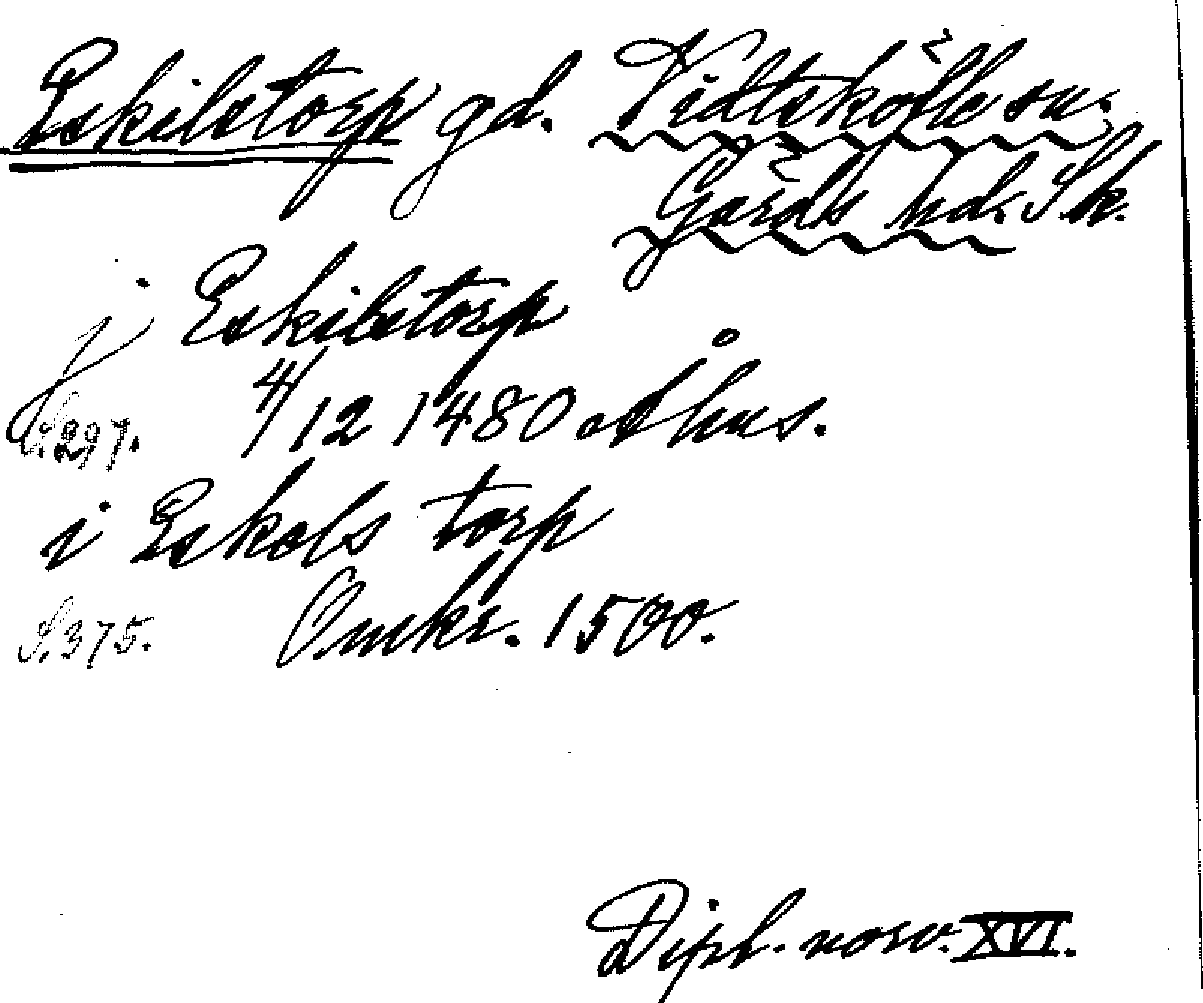 Eskilstorp gd. Vidtsköfle sn.
Gärds hd. Sk.
j Eskilstorp
S. 297. 4/12 1480 Åhus.
i Eskols torp
S. 375. Omkr. 1500.
Dipl. norv. XVI.